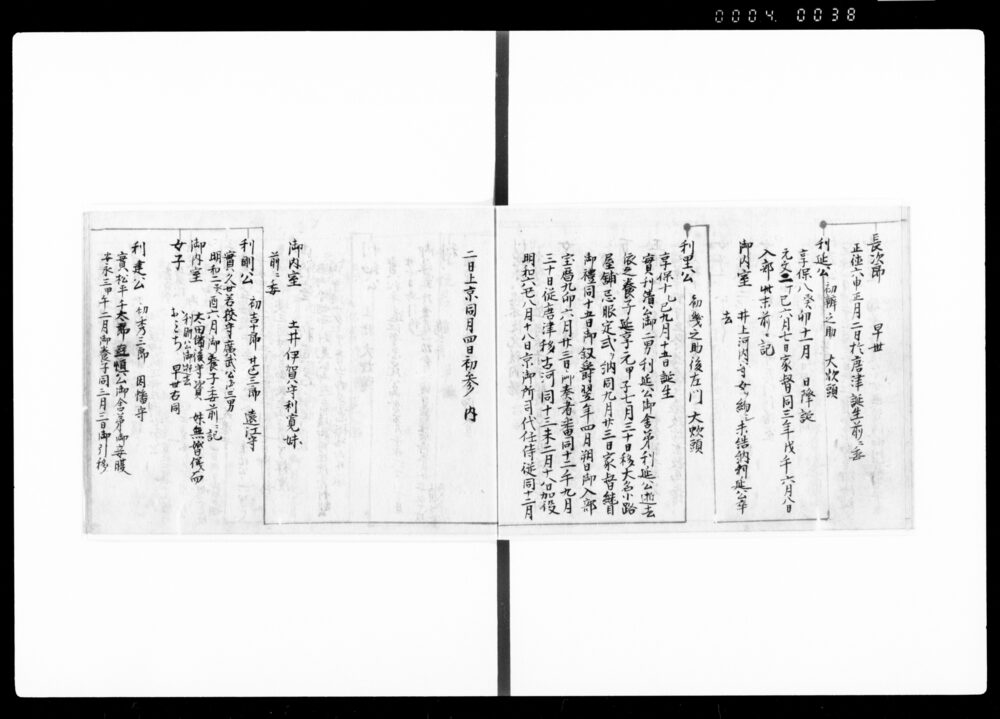 0004 0038
長次郎 早世
正徳六申正月二日於唐津誕生前ニ委
利延公 初鞆之助 大炊頭
享保八癸卯十一月 日降誕
元文二丁巳六月七日家督同三年戊午六月八日
入部 世末前ニ記
御内室 井上河内守女 絢 未結納利延公卒
去
利里公 初幾之助後左門 大炊頭
享保十巳九月十五日誕生
實利清公御二男利延公御舎弟利延公逝去
依之養子延享元甲子七月三十日移大名小路
屋鋪忌服定式納同九月廿三日家督継目
御禮同十五日御叙爵翌年四月朔日御入部
宝暦九卯六月廿三日所奏者番同十二午九月
三十日従唐津移古河同十三未二月十八日加役
明和六丑八月十八日京御所司代任侍従同十二月
二日上京同月四日初参内
御内室 土井伊賀守利寛妹
前ニ委
利剛公 初吉十郎 廿三郎 遠江守
實久世若狭守廣武公子三男
明和二乙酉六月御養子委前ニ記
御内室 太田備後守資 妹無皆儀而
利剛公御逝去
女子 早世右同
利建公 初秀三郎 因幡守
實松平 公御舎弟御妾腹
安永三甲午二月御養子同三月三日御引移